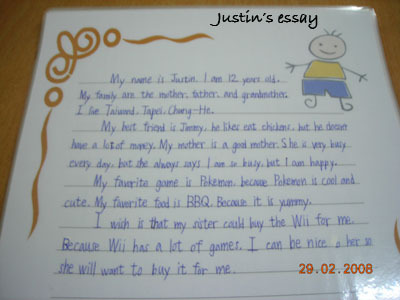 Justin's essay
My name is Justin. I am 12 years old.
My family are the mother, father, and grandmother.
I live Taiwand, Tapei, Chung-He.
My best friend is Jimmy, he likes eat chickens, but he doesn't
have a lot of money. My mother is a good mother. She is very busy
every day, but she always says I am so busy, but I am happy.
My favorite game is Pokemon, because Pokemon is cool and
cute. My favorite food is BBQ. Because it is yummy.
I wish is that my sister could buy the Wii for me.
Because Wii has a lot of games. I can be nice to her so
she will want to buy it for me.
29.02.2008